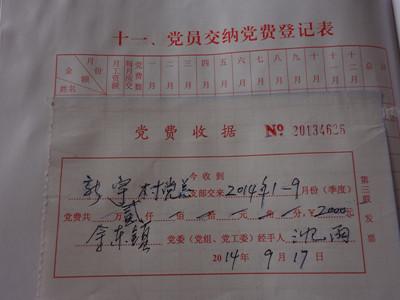 十一、党员交纳党费登记表
月份
金额
姓名
月工资额
每月应交党费数
一月
二月
三月
四月
五月
六月
七月
八月
九月
十月
十一月
十二月
党费收据 № 20134626
今收到
新宇村党总支部交来2014年1-9月份(季度)
党费共 万贰仟 佰 拾 元 角 分,¥2000元
余东镇 党委(党组、党工委)经手人
2014年9月17日
第三联
发票